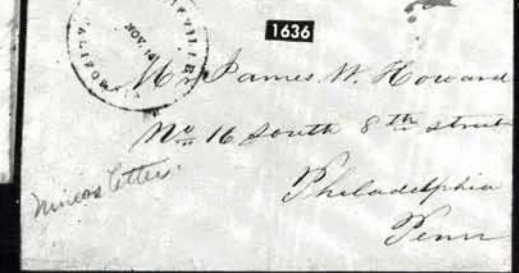 1636
NOV. 14
Mr James W. Howard
No 16 South 8th street
Philadelphia
Penn
Miners letter.